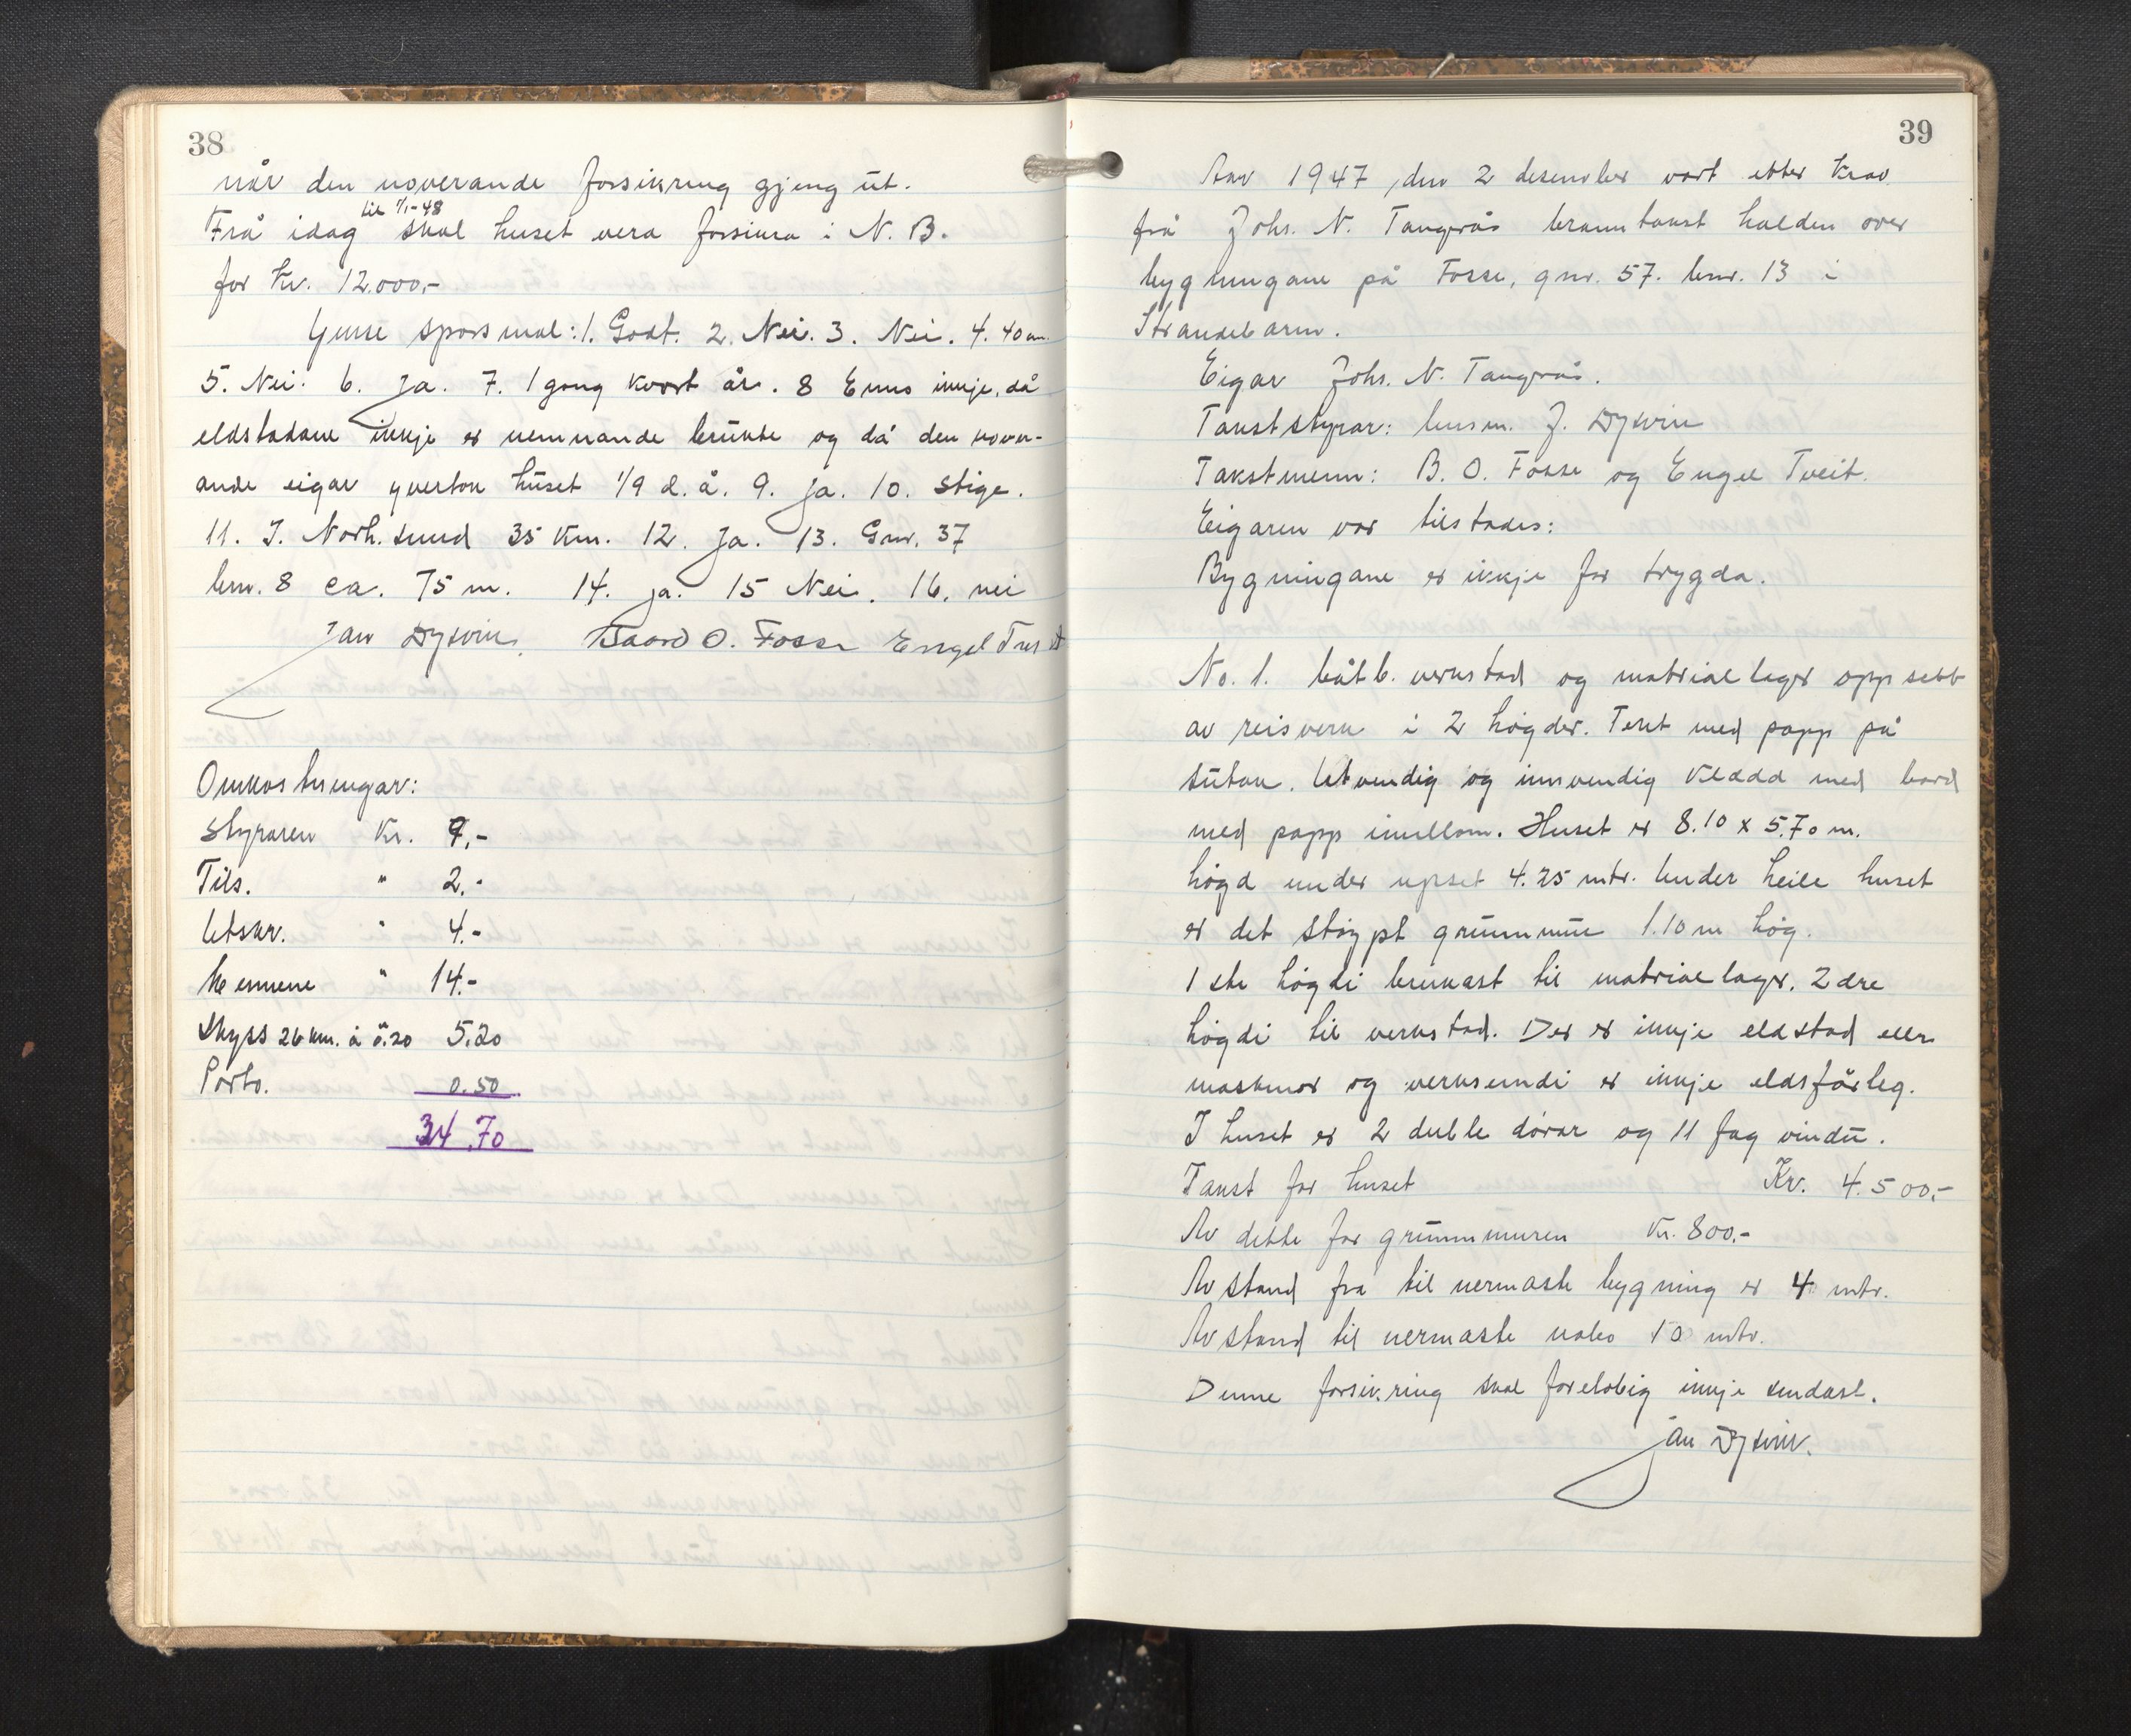 38
når den noverande forsikring gjeng ut.
til 1/1-48
Frå idag skal huset vera forsikra i N. B.
for kr. 12.000,-
Ymse spørsmal: 1. Godt. 2. Nei. 3. Nei. 4. 40 cm.
5. Nei. 6. Ja. 7. 1 gong kvart år. 8 Enno inkje, då
eldstadane inkje er nemnande brukte og då den nover-
ande eigar yvertok huset 1/9 d. å. 9. Ja. 10. Stige.
11. I. Norh.sund 35 km. 12. Ja. 13. Gnr. 37
bnr. 8 ca. 75 m. 14. ja. 15 Nei. 16. nei
Jan Dysvik. Baard O. Fosse Engel Tveit
Omkostningar:
Styraren Kr. 9,-
Tils. " 2,-
Utskr. " 4.-
Mennene " 14.-
Skyss 26 km. à 0.20 5.20
Porto. 0.50
34.70
39
Aar 1947, den 2 desember vart etter krav
frå Johs. N. Tangerås branntakst halden over
bygningane på Fosse, gnr. 57. bnr. 13 i
Strandebarm.
Eigar Johs. N. Tangerås.
Takststyrar: lensm. J. Dysvik
Takstmenn: B. O. Fosse og Engel Tveit.
Eigaren var tilstades:
Bygningane er inkje før trygda.
No. 1. båtb. verkstad og matrial lager oppsett
av reisverk i 2 høgder. Tekt med papp på
sutak. Utvendig og innvendig kledd med bord
med papp imellom. Huset er 8.10 x 5.70 m.
høgd under upset 4.25 mtr. Under heile huset
er det støypt grunnmur 1.10 m høg.
1 ste høgdi brukast til matrial lager. 2dre
høgdi til verkstad. Der er inkje eldstad eller
maskinor og verksemdi er inkje eldsfårleg.
I huset er 2 duble dørar og 11 fag vindu.
Takst for huset Kr. 4.500,-
Av dette for grunnmuren Kr. 800.-
Avstand fra til nermaste bygning er 4 mtr.
Avstand til nermaste nabo 10 mtr.
Denne forsikring skal foreløbig inkje sendast.
Jan Dysvik.